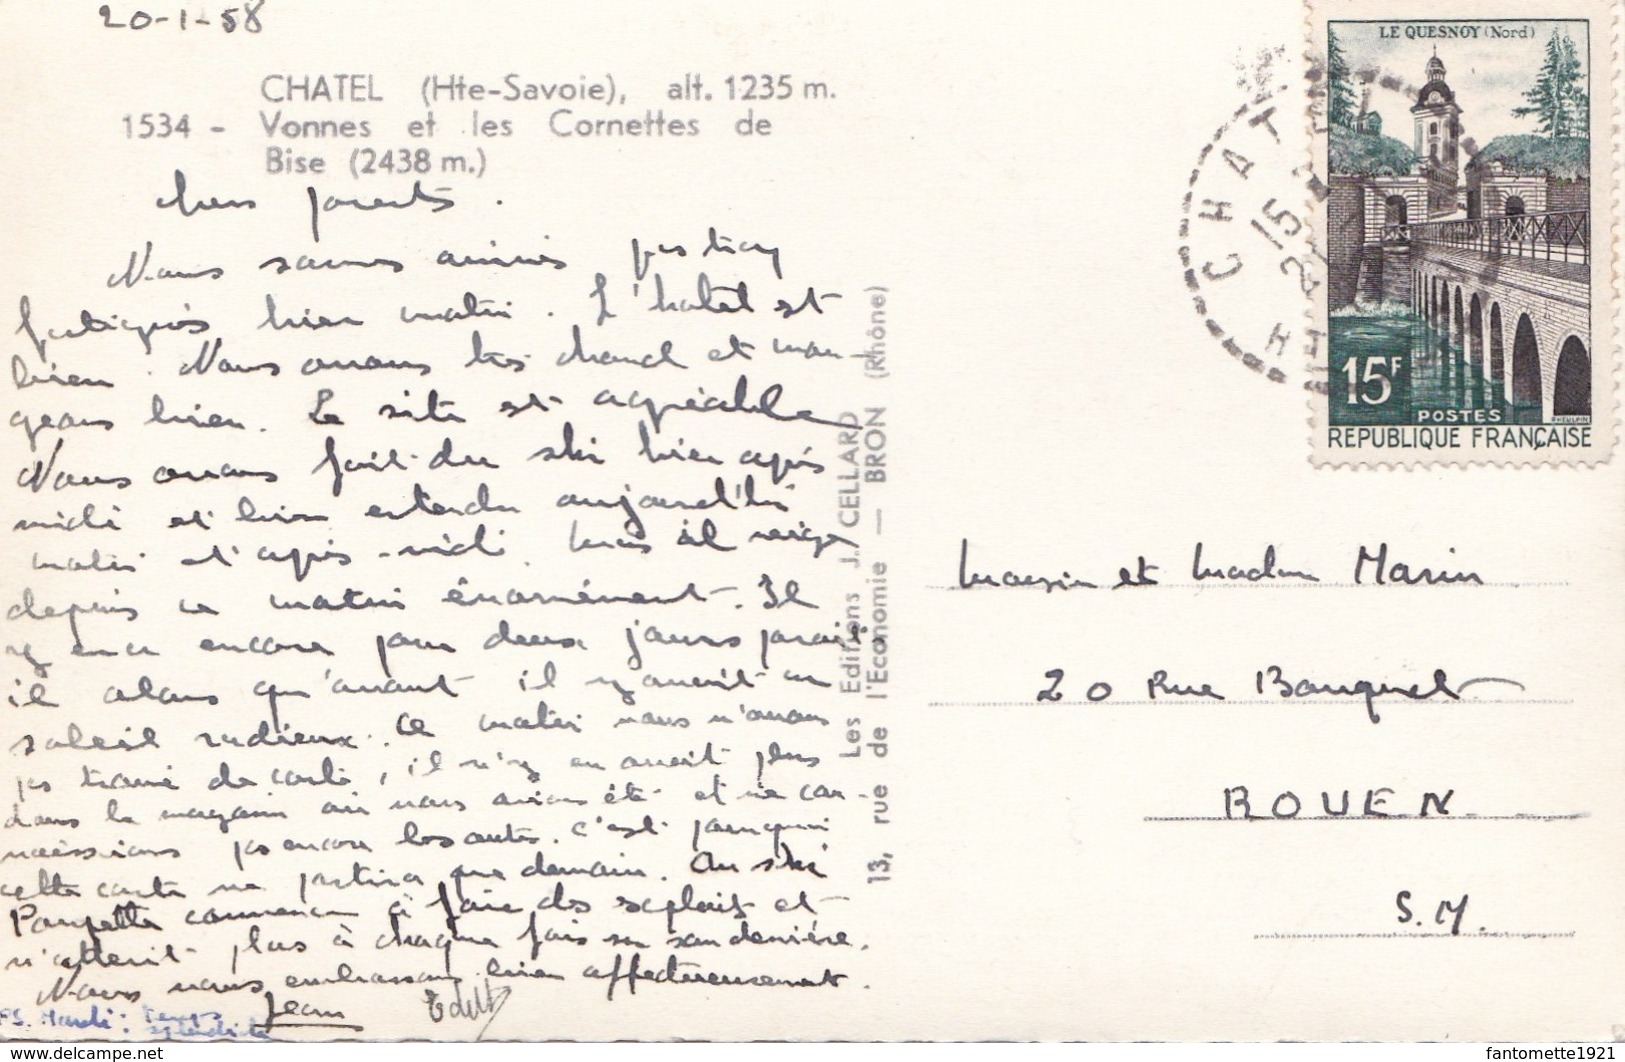 20-1-58
CHATEL (Hte-Savoie), alt. 1235 m.
1534 - Vonnes et les Cornettes de
Bise (2438 m.)
Chers parents.
Nous sommes arrivés pas trop
fatigués hier matin. L'hotel est
bien. Nous avons très chaud et man-
geons bien. Le site est agréable
Nous avons fait du ski hier après
midi et bien entendu aujourd'hui
matin et après-midi. Mais il neige
depuis ce matin énormément. Il
y en a encore pour deux jours parait
il alors qu'avant il y avait un
soleil radieux. Ce matin nous n'avons
pas trouvé de carte, il n'y en avait plus
dans le magasin où nous avions été et ne con-
naissions pas encore les autres. C'est pourquoi
cette carte ne partira que demain. Au ski
Poupette commence à faire des exploits et
n'atterit plus à chaque fois sur son derrière.
Nous vous embrassons bien affectueusement.
Jean
PS. Mardi: temps
splendide
Les Editions J. CELLARD
13, rue de l'Economie — BRON (Rhône)
CHAT
15
H
LE QUESNOY (Nord)
15F
POSTES
REPUBLIQUE FRANÇAISE
et Madame Marin
20 Rue Bouquet
ROUEN
S.M.
www.delcampe.net
fantomette1921